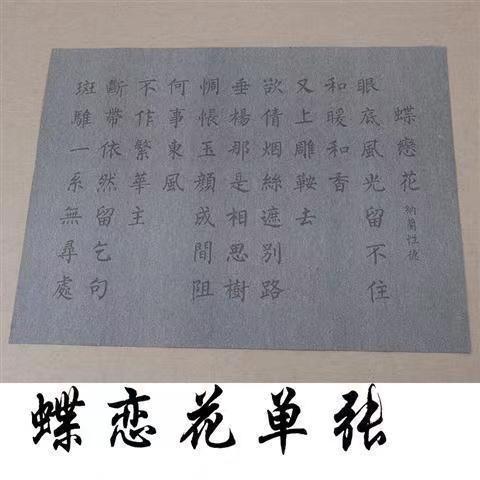 蝶戀花 納蘭性德
眼底風光留不住
和暖和香
又上雕鞍去
欲倩烟絲遮別路
垂楊那是相思樹
惆悵玉顏成間阻
何事東風
不作繁華主
斷帶依然留乞句
斑騅一系無尋處
蝶恋花单张